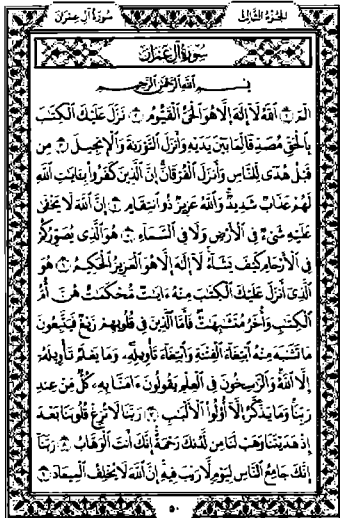 الجزء الثالث سورة آل عمران
سورة آل عمران
بسم الله الرحمن الرحيم
الٓمٓ ١ ٱللَّهُ لَآ إِلَٰهَ إِلَّا هُوَ ٱلْحَىُّ ٱلْقَيُّومُ ٢ نَزَّلَ عَلَيْكَ ٱلْكِتَٰبَ
بِٱلْحَقِّ مُصَدِّقًا لِّمَا بَيْنَ يَدَيْهِ وَأَنزَلَ ٱلتَّوْرَىٰةَ وَٱلْإِنجِيلَ ٣ مِن
قَبْلُ هُدًى لِّلنَّاسِ وَأَنزَلَ ٱلْفُرْقَانَ إِنَّ ٱلَّذِينَ كَفَرُوا۟ بِـَٔايَٰتِ ٱللَّهِ
لَهُمْ عَذَابٌ شَدِيدٌ وَٱللَّهُ عَزِيزٌ ذُو ٱنتِقَامٍ ٤ إِنَّ ٱللَّهَ لَا يَخْفَىٰ
عَلَيْهِ شَىْءٌ فِى ٱلْأَرْضِ وَلَا فِى ٱلسَّمَآءِ ٥ هُوَ ٱلَّذِى يُصَوِّرُكُمْ
فِى ٱلْأَرْحَامِ كَيْفَ يَشَآءُ لَآ إِلَٰهَ إِلَّا هُوَ ٱلْعَزِيزُ ٱلْحَكِيمُ ٦ هُوَ
ٱلَّذِىٓ أَنزَلَ عَلَيْكَ ٱلْكِتَٰبَ مِنْهُ ءَايَٰتٌ مُّحْكَمَٰتٌ هُنَّ أُمُّ
ٱلْكِتَٰبِ وَأُخَرُ مُتَشَٰبِهَٰتٌ فَأَمَّا ٱلَّذِينَ فِى قُلُوبِهِمْ زَيْغٌ فَيَتَّبِعُونَ
مَا تَشَٰبَهَ مِنْهُ ٱبْتِغَآءَ ٱلْفِتْنَةِ وَٱبْتِغَآءَ تَأْوِيلِهِۦ وَمَا يَعْلَمُ تَأْوِيلَهُۥٓ
إِلَّا ٱللَّهُ وَٱلرَّٰسِخُونَ فِى ٱلْعِلْمِ يَقُولُونَ ءَامَنَّا بِهِۦ كُلٌّ مِّنْ عِندِ
رَبِّنَا وَمَا يَذَّكَّرُ إِلَّآ أُو۟لُوا۟ ٱلْأَلْبَٰبِ ٧ رَبَّنَا لَا تُزِغْ قُلُوبَنَا بَعْدَ
إِذْ هَدَيْتَنَا وَهَبْ لَنَا مِن لَّدُنكَ رَحْمَةً إِنَّكَ أَنتَ ٱلْوَهَّابُ ٨ رَبَّنَآ
إِنَّكَ جَامِعُ ٱلنَّاسِ لِيَوْمٍ لَّا رَيْبَ فِيهِ إِنَّ ٱللَّهَ لَا يُخْلِفُ ٱلْمِيعَادَ ٩
٥٠